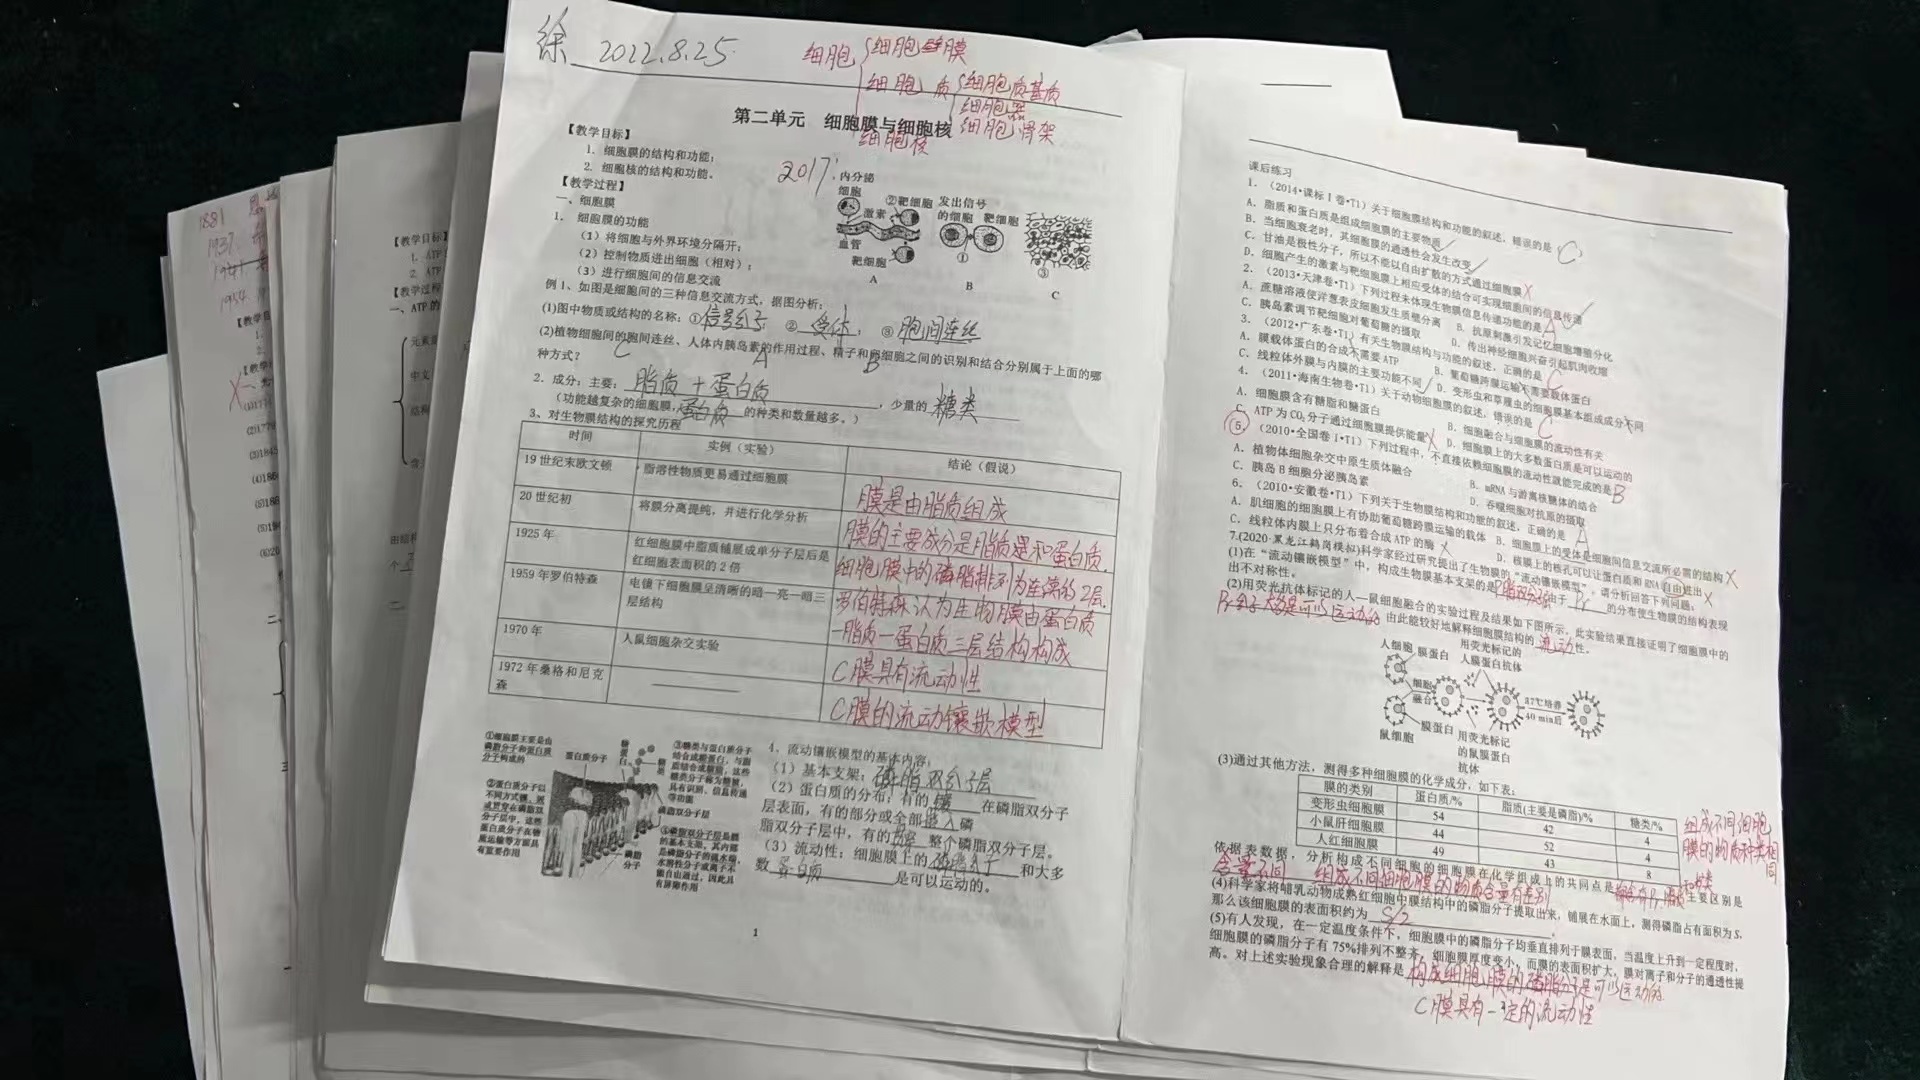 徐 2022.8.25
细胞 细胞膜
细胞质 细胞质基质
细胞器
细胞骨架
细胞核
第二单元 细胞膜与细胞核
【教学目标】
1. 细胞膜的结构和功能；
2. 细胞核的结构和功能。
【教学过程】
一、细胞膜
1. 细胞膜的功能
（1）将细胞与外界环境分隔开；
（2）控制物质进出细胞（相对）；
（3）进行细胞间的信息交流
2017：
内分泌
细胞 ②靶细胞 发出信号
激素 的细胞 靶细胞
血管
靶细胞 ① ③
A B C
例1、如图是细胞间的三种信息交流方式，据图分析：
(1)图中物质或结构的名称：①信号分子 ② 受体 ③ 胞间连丝
(2)植物细胞间的胞间连丝、人体内胰岛素的作用过程、精子和卵细胞之间的识别和结合分别属于上面的哪
种方式？ C A B
2．成分：主要：脂质＋蛋白质，少量的 糖类
（功能越复杂的细胞膜，蛋白质 的种类和数量越多。）
3、对生物膜结构的探究历程
时间 实例（实验） 结论（假说）
19世纪末欧文顿 脂溶性物质更易通过细胞膜 膜是由脂质组成
20世纪初 将膜分离提纯，并进行化学分析 膜的主要成分是脂质和蛋白质.
1925年 红细胞膜中脂质铺展成单分子层后是
红细胞表面积的2倍 细胞膜中的磷脂排列为连续的2层.
1959年罗伯特森 电镜下细胞膜呈清晰的暗—亮—暗三
层结构 罗伯特森认为生物膜由蛋白质
—脂质—蛋白质三层结构构成
1970年 人鼠细胞杂交实验 C膜具有流动性
1972年桑格和尼克
森 C膜的流动镶嵌模型
①细胞膜主要是由
磷脂分子和蛋白质
分子构成的
②蛋白质分子以
不同方式镶、嵌
或贯穿在磷脂双
分子层中，这些
蛋白质分子在物
质运输等方面具
有重要作用
蛋白质分子
糖蛋白
③糖类与蛋白质分子
结合成糖蛋白，与脂
质结合成糖脂，这些
糖类分子称为糖被，
具有识别、信息传递
等功能
磷脂双分子层
④磷脂双分子层是膜
的基本支架，其内部
是磷脂分子的疏水端，
水溶性分子或离子不
能自由通过，因此具
有屏障作用
磷脂
分子
4．流动镶嵌模型的基本内容：
（1）基本支架：磷脂双分子层
（2）蛋白质的分布：有的 镶 在磷脂双分子
层表面，有的部分或全部 嵌入 磷
脂双分子层中，有的 贯穿 整个磷脂双分子层。
（3）流动性：细胞膜上的 磷脂分子 和大多
数 蛋白质 是可以运动的。
1
课后练习
1．（2014•课标Ⅰ卷•T1）关于细胞膜结构和功能的叙述，错误的是 C
A．脂质和蛋白质是组成细胞膜的主要物质
B．当细胞衰老时，其细胞膜的通透性会发生改变
C．甘油是极性分子，所以不能以自由扩散的方式通过细胞膜
D．细胞产生的激素与靶细胞膜上相应受体的结合可实现细胞间的信息传递
2．（2013•天津卷•T1）下列过程未体现生物膜信息传递功能的是 A
A．蔗糖溶液使洋葱表皮细胞发生质壁分离 B．抗原刺激引发记忆细胞增殖分化
C．胰岛素调节靶细胞对葡萄糖的摄取 D．传出神经细胞兴奋引起肌肉收缩
3．（2012•广东卷•T1）有关生物膜结构与功能的叙述，正确的是 C
A．膜载体蛋白的合成不需要ATP B．葡萄糖跨膜运输不需要载体蛋白
C．线粒体外膜与内膜的主要功能不同 D．变形虫和草履虫的细胞膜基本组成成分不同
4．（2011•海南生物卷•T1）关于动物细胞膜的叙述，错误的是 C
A．细胞膜含有糖脂和糖蛋白 B．细胞融合与细胞膜的流动性有关
C．ATP为CO₂分子通过细胞膜提供能量 D．细胞膜上的大多数蛋白质是可以运动的
5．（2010•全国卷Ⅰ•T1）下列过程中，不直接依赖细胞膜的流动性就能完成的是 B
A．植物体细胞杂交中原生质体融合 B．mRNA与游离核糖体的结合
C．胰岛B细胞分泌胰岛素 D．吞噬细胞对抗原的摄取
6．（2010•安徽卷•T1）下列关于生物膜结构和功能的叙述，正确的是 A
A．肌细胞的细胞膜上有协助葡萄糖跨膜运输的载体 B．细胞膜上的受体是细胞间信息交流所必需的结构
C．线粒体内膜上只分布着合成ATP的酶 D．核膜上的核孔可以让蛋白质和RNA自由进出
7.(2020·黑龙江鹤岗模拟)科学家经过研究提出了生物膜的“流动镶嵌模型”。请分析回答下列问题：
(1)在“流动镶嵌模型”中，构成生物膜基本支架的是 由于 Pr 的分布使生物膜的结构表现
出不对称性。
(2)用荧光抗体标记的人—鼠细胞融合的实验过程及结果如下图所示。此实验结果直接证明了细胞膜中的
Pr分子大多是可以运动的 由此能较好地解释细胞膜结构的 流动 性。
人细胞 膜蛋白 用荧光标记的
人膜蛋白抗体
细胞
融合 37℃培养
40 min后
鼠细胞 膜蛋白 用荧光标记
的鼠膜蛋白
抗体
(3)通过其他方法，测得多种细胞膜的化学成分，如下表：
膜的类别 蛋白质/% 脂质(主要是磷脂)/% 糖类/%
变形虫细胞膜 54 42 4
小鼠肝细胞膜 44 52 4
人红细胞膜 49 43 8
组成不同细胞
膜的物质种类相
同
依据表数据，分析构成不同细胞的细胞膜在化学组成上的共同点是 都含有Pr、脂质和糖类 主要区别是
含量不同 组成不同细胞膜的物质含量有差别
(4)科学家将哺乳动物成熟红细胞中膜结构中的磷脂分子提取出来，铺展在水面上，测得磷脂占有面积为S，
那么该细胞膜的表面积约为 S/2
(5)有人发现，在一定温度条件下，细胞膜中的磷脂分子均垂直排列于膜表面，当温度上升到一定程度时，
细胞膜的磷脂分子有75%排列不整齐，细胞膜厚度变小，而膜的表面积扩大，膜对离子和分子的通透性提
高。对上述实验现象合理的解释是 构成细胞膜的磷脂分子是可以运动的
C膜具有一定的流动性
1881
1937
【教学目标
1. ATP
2. ATP
【教学过程
一、ATP的